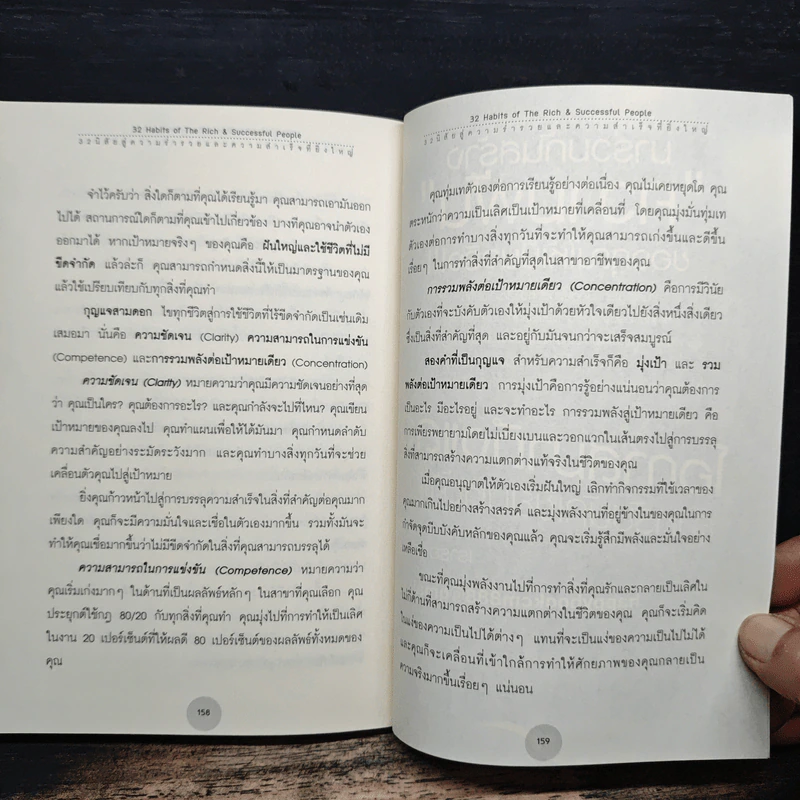 32 Habits of The Rich & Successful People
32นิสัยสู่ความร่ำรวยและความสำเร็จที่ยิ่งใหญ่
จำไว้ครับว่า สิ่งใดก็ตามที่คุณได้เรียนรู้มา คุณสามารถเอามันออก
ไปได้ สถานการณ์ใดก็ตามที่คุณเข้าไปเกี่ยวข้อง บางทีคุณอาจนำตัวเอง
ออกมาได้ หากเป้าหมายจริงๆ ของคุณคือ ฝันใหญ่และใช้ชีวิตที่ไม่มี
ขีดจำกัด แล้วล่ะก็ คุณสามารถกำหนดสิ่งนี้ให้เป็นมาตรฐานของคุณ
แล้วใช้เปรียบเทียบกับทุกสิ่งที่คุณทำ
กุญแจสามดอก ไขทุกชีวิตสู่การใช้ชีวิตที่ไร้ขีดจำกัดเป็นเช่นเดิม
เสมอมา นั่นคือ ความชัดเจน (Clarity) ความสามารถในการแข่งขัน
(Competence) และการรวมพลังต่อเป้าหมายเดียว (Concentration)
ความชัดเจน (Clarity) หมายความว่าคุณมีความชัดเจนอย่างที่สุด
ว่า คุณเป็นใคร? คุณต้องการอะไร? และคุณกำลังจะไปที่ไหน? คุณเขียน
เป้าหมายของคุณลงไป คุณทำแผนเพื่อให้ได้มันมา คุณกำหนดลำดับ
ความสำคัญอย่างระมัดระวังมาก และคุณทำบางสิ่งทุกวันที่จะช่วย
เคลื่อนตัวคุณไปสู่เป้าหมาย
ยิ่งคุณก้าวหน้าไปสู่การบรรลุความสำเร็จในสิ่งที่สำคัญต่อคุณมาก
เพียงใด คุณก็จะมีความมั่นใจและเชื่อในตัวเองมากขึ้น รวมทั้งมันจะ
ทำให้คุณเชื่อมากขึ้นว่าไม่มีขีดจำกัดในสิ่งที่คุณสามารถบรรลุได้
ความสามารถในการแข่งขัน (Competence) หมายความว่า
คุณเริ่มเก่งมากๆ ในด้านที่เป็นผลลัพธ์หลักๆ ในสาขาที่คุณเลือก คุณ
ประยุกต์ใช้กฎ 80/20 กับทุกสิ่งที่คุณทำ คุณมุ่งไปที่การทำให้เป็นเลิศ
ในงาน 20 เปอร์เซ็นต์ที่ให้ผลดี 80 เปอร์เซ็นต์ของผลลัพธ์ทั้งหมดของ
คุณ
158
32 Habits of The Rich & Successful People
32นิสัยสู่ความร่ำรวยและความสำเร็จที่ยิ่งใหญ่
คุณทุ่มเทตัวเองต่อการเรียนรู้อย่างต่อเนื่อง คุณไม่เคยหยุดโต คุณ
ตระหนักว่าความเป็นเลิศเป็นเป้าหมายที่เคลื่อนที่ โดยคุณมุ่งมั่นทุ่มเท
ตัวเองต่อการทำบางสิ่งทุกวันที่จะทำให้คุณสามารถเก่งขึ้นและดีขึ้น
เรื่อยๆ ในการทำสิ่งที่สำคัญที่สุดในสาขาอาชีพของคุณ
การรวมพลังต่อเป้าหมายเดียว (Concentration) คือการมีวินัย
กับตัวเองที่จะบังคับตัวเองให้มุ่งเป้าด้วยหัวใจเดียวไปยังสิ่งหนึ่งสิ่งเดียว
ซึ่งเป็นสิ่งที่สำคัญที่สุด และอยู่กับมันจนกว่าจะเสร็จสมบูรณ์
สองคำที่เป็นกุญแจ สำหรับความสำเร็จก็คือ มุ่งเป้า และ รวม
พลังต่อเป้าหมายเดียว การมุ่งเป้าคือการรู้อย่างแน่นอนว่าคุณต้องการ
เป็นอะไร มีอะไรอยู่ และจะทำอะไร การรวมพลังสู่เป้าหมายเดียว คือ
การเพียรพยายามโดยไม่เบี่ยงเบนและวอกแวกในเส้นตรงไปสู่การบรรลุ
สิ่งที่สามารถสร้างความแตกต่างแท้จริงในชีวิตของคุณ
เมื่อคุณอนุญาตให้ตัวเองเริ่มฝันใหญ่ เลิกทำกิจกรรมที่ใช้เวลาของ
คุณมากเกินไปอย่างสร้างสรรค์ และมุ่งพลังงานที่อยู่ข้างในของคุณในการ
กำจัดจุดบีบบังคับหลักของคุณแล้ว คุณจะเริ่มรู้สึกมีพลังและมั่นใจอย่าง
เหลือเชื่อ
ขณะที่คุณมุ่งพลังงานไปที่การทำสิ่งที่คุณรักและกลายเป็นเลิศใน
ไม่กี่ด้านที่สามารถสร้างความแตกต่างในชีวิตของคุณ คุณก็จะเริ่มคิด
ในแง่ของความเป็นไปได้ต่างๆ แทนที่จะเป็นแง่ของความเป็นไปไม่ได้
และคุณก็จะเคลื่อนที่เข้าใกล้การทำให้ศักยภาพของคุณกลายเป็น
ความจริงมากขึ้นเรื่อยๆ แน่นอน
159